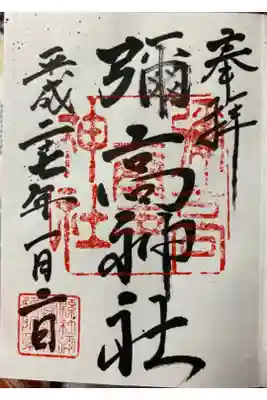 奉拝
彌高神社
平成二七年一月二日
神社